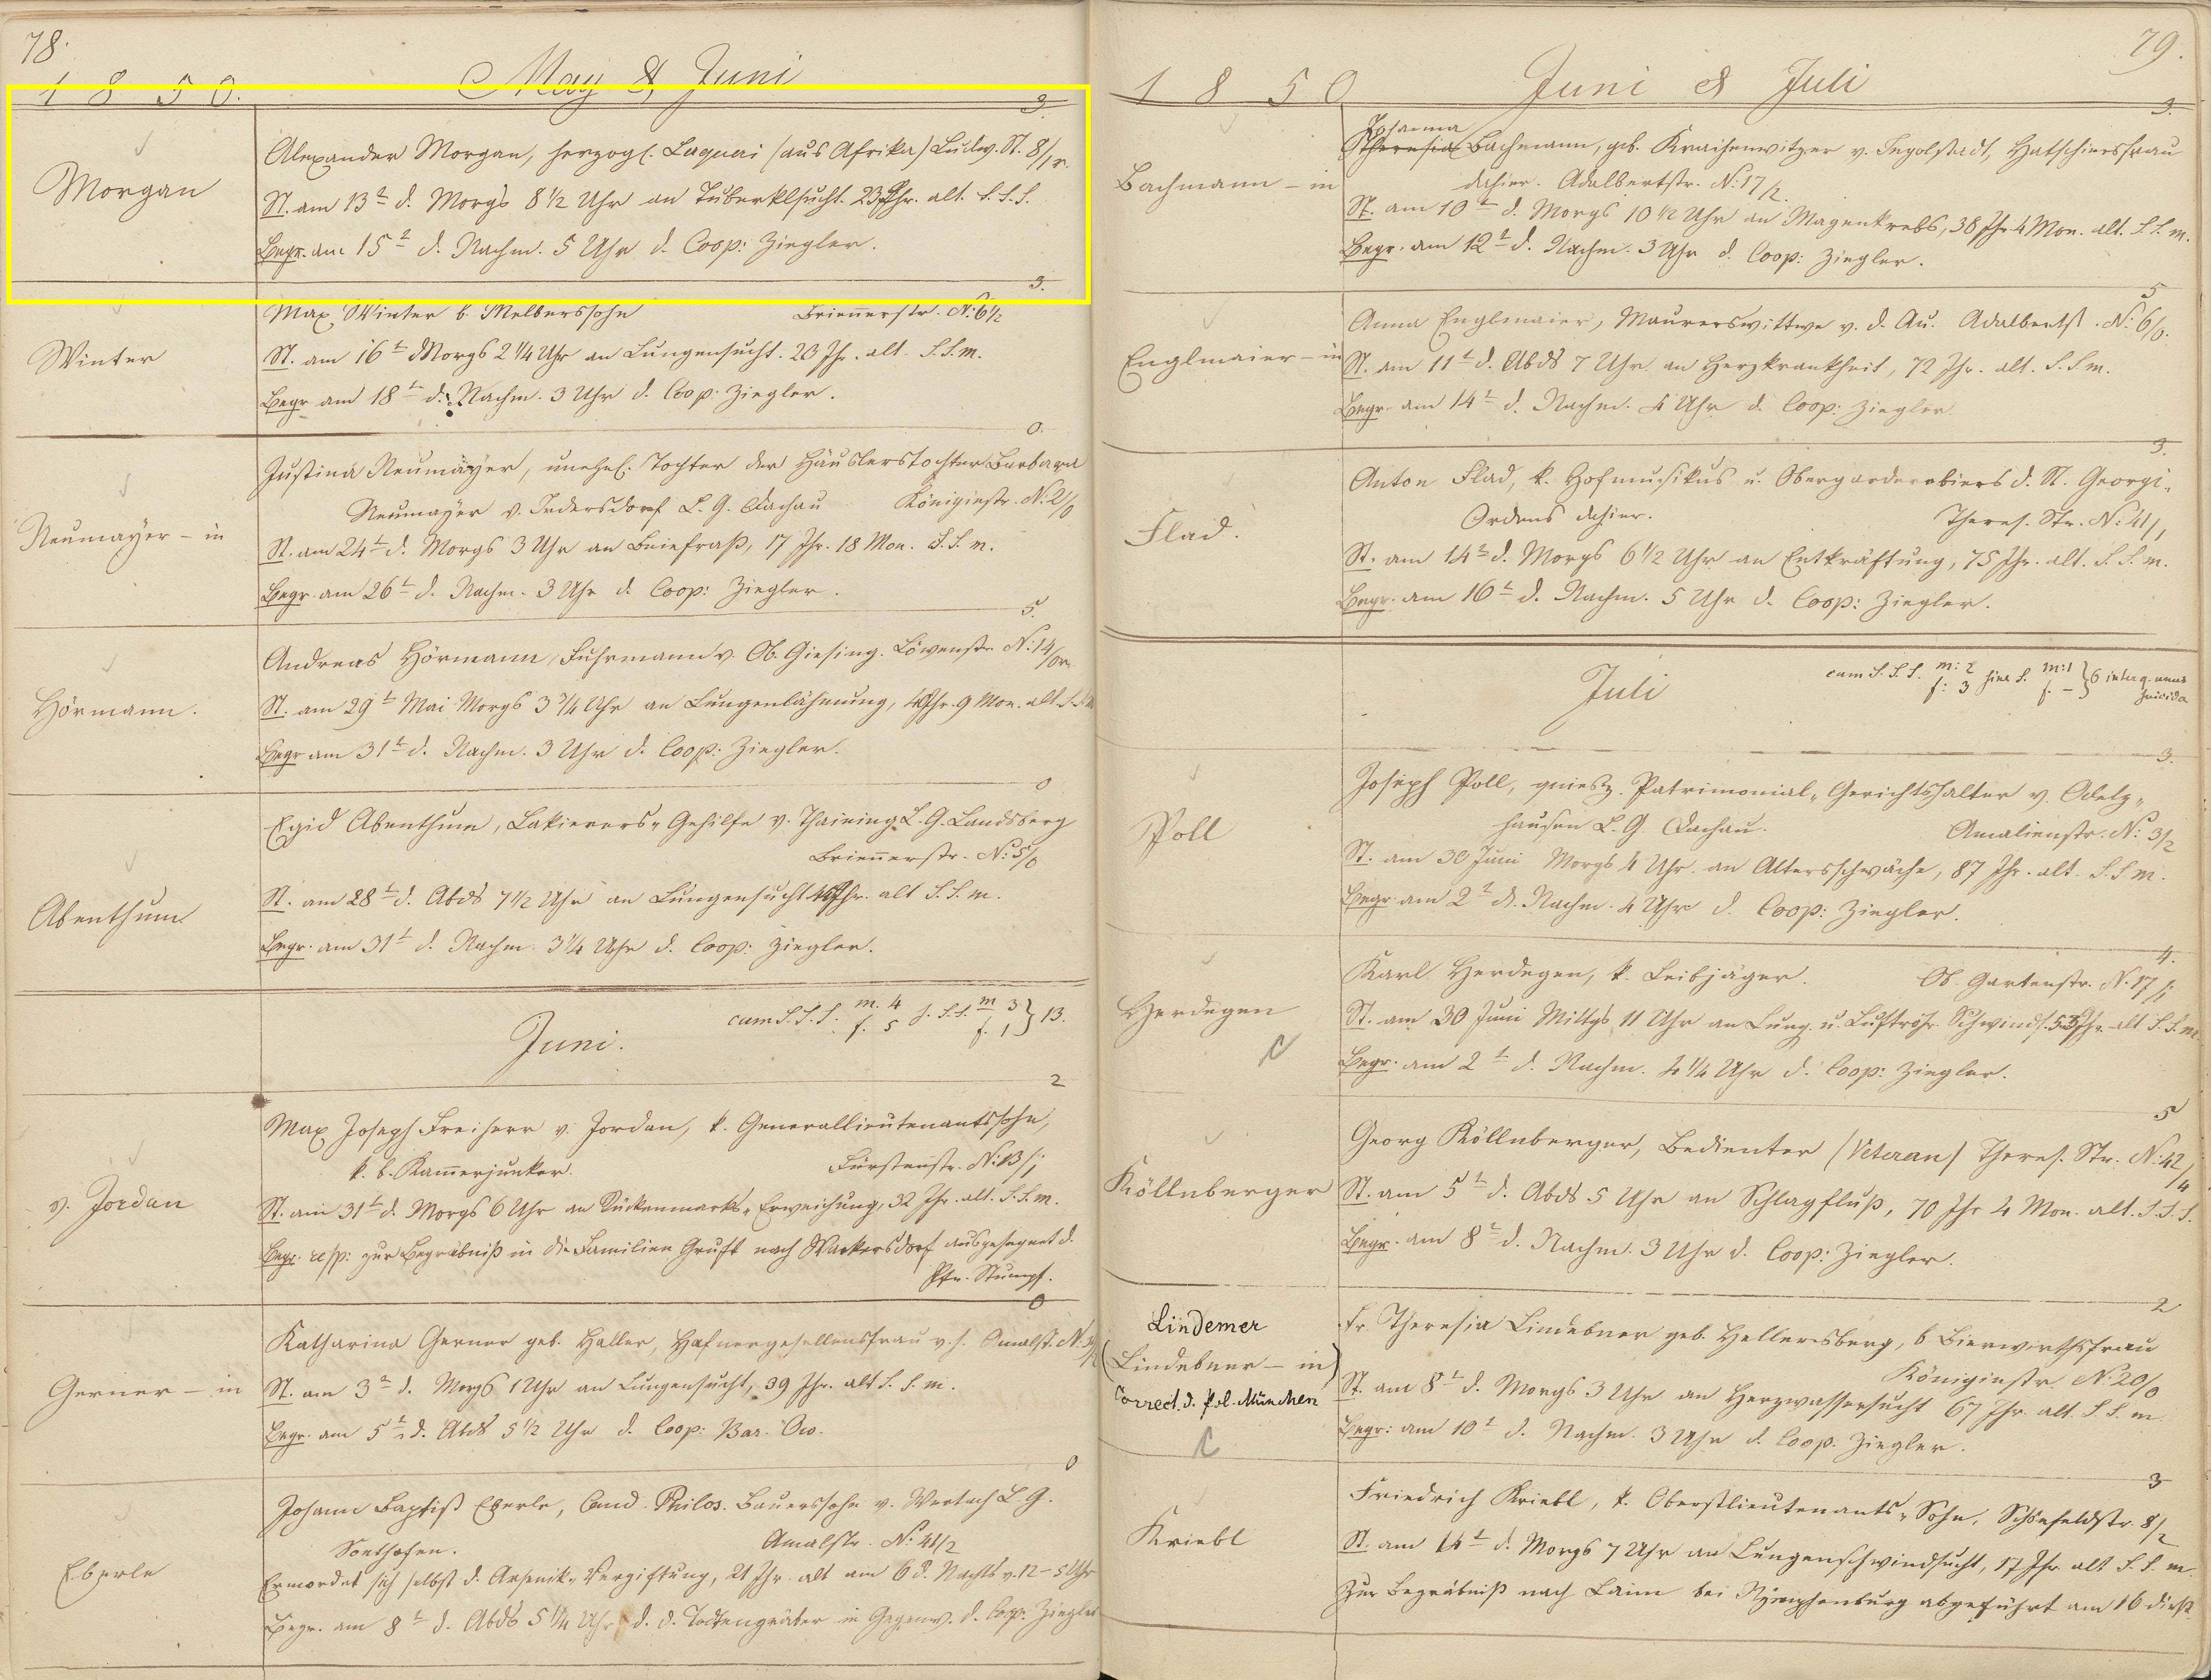 78.
1850. May & Juni
3.
Morgan
Alexander Morgan, herzogl. Laquai (aus Afrika) Ludw. St. 8/1 r.
St. am 13t d. Morgs 8 1/2 Uhr an Tuberklsucht. 23 Jhr. alt. S. S. S.
Begr. am 15t d. Nachm. 5 Uhr d. Coop: Ziegler.
3.
Winter
Max Winter b. Melberssohn Briennerstr. N: 6 1/2
St. am 16t d Morgs 2 1/4 Uhr an Lungensucht. 23 Jhr. alt. S. S. m.
Begr am 18t d. Nachm. 3 Uhr d. Coop. Ziegler.
0.
Neumayer – in
Justina Neumayer, unehel. Tochter der Häuslerstochter Barbara
Neumayer v. Indersdorf L. G. Dachau Königinstr. N. 2/0
St. am 24t d. Morgs 3 Uhr an Beinfraß, 17 Jhr. 18 Mon. S. S. m.
Begr. am 26t d. Nachm. 3 Uhr d. Coop: Ziegler.
5.
Hörmann.
Andreas Hörmann, Fuhrmann v. Ob. Giesing. Löwenstr. N: 14/0
St. am 29t Mai Morgs 3 3/4 Uhr an Lungenlähmung, Jhr. 9 Mon. alt.
Begr am 31t d. Nachm. 3 Uhr d. Coop: Ziegler.
0
Abenthum
Egid Abenthum, Lakierers-Gehilfe v. Thaining L. G. Landsberg
Briennerstr. N: 5/0
St. am 28t d. Abds 7 1/2 Uhr an Lungensucht Jhr. alt S. S. m.
Begr. am 31t d. Nachm. 3 1/4 Uhr d. Coop: Ziegler.
Juni. cum S. S. S. m. 4 f. 5 s. S. S. m 3 f. 1 } 13.
2
v. Jordan
Max Joseph Freiherr v. Jordan, k. Generallieutenantssohn,
k. b. Kammerjunker. Fürstenstr. N: 13/1
St. am 31t d. Morgs 6 Uhr an Rückenmarks-Erweichung, 32 Jhr. alt. S. S. m.
Begr. resp: zur Begräbniß in die Familien Gruft nach Wackersdorf ausgesegnet d.
Pfr. Stumpf.
0
Gerner – in
Katharina Gerner geb. Haller, Hafnergesellensfrau v. h. Amalst. N.
St. am 3t d. Morgs 1 Uhr an Lungensucht, 39 Jhr. alt S. S. m.
Begr. am 5t d. Abds 5 1/2 Uhr d. Coop: Bar. Ow.
0
Eberle
Johann Baptist Eberle, Cand. Philos. Bauerssohn v. Wertach L. G.
Sonthofen. Amalstr. N: 41/2
Ermordet sich selbst d. Arsenik-Vergiftung, 21 Jhr. alt am 6 d. Nachts v. 12–5 Uhr
Begr. am 8t d. Abds 5 1/4 Uhr d. d. Todtengräber in Gegenw. d. Coop. Ziegler
79.
1850 Juni & Juli
3.
Bachmann – in
Johanna
Theresia Bachmann, geb. Kraihenwitzer v. Ingolstadt, Hatschiersfrau
dahier. Adalbertstr. N: 17/2.
St. am 10t d. Morgs 10 1/2 Uhr an Magenkrebs, 38 Jhr 4 Mon. alt. S. S. m.
Begr. am 12t d. Nachm. 3 Uhr d. Coop: Ziegler.
5
Englmaier – in
Anna Englmaier, Maurerswittwe v. d. Au. Adalbertst. N: 6/0.
St. am 11t d. Abds 7 Uhr an Herzkrankheit, 72 Jhr. alt. S. S. m.
Begr. am 14t d. Nachm. 4 Uhr d. Coop: Ziegler.
3.
Flad.
Anton Flad, k. Hofmusikus u. Obergarderobiers d. St. Georgi-
Ordens dahier. Theres. Str. N: 41/1
St. am 14t d. Morgs 6 1/2 Uhr an Entkräftung, 75 Jhr. alt. S. S. m.
Begr. am 16t d. Nachm. 5 Uhr d. Coop: Ziegler.
Juli cum S. S. S. m: 2 f: 3 sine S. m: 1 f. – } 6 inter q. unus suicida
3.
Poll
Joseph Poll, quiesz. Patrimonial-Gerichtshalter v. Odelz-
hausen L. G. Dachau. Amalienstr. N: 3/2
St. am 30 Juni Morgs 4 Uhr an Altersschwäche, 87 Jhr. alt. S. S. m.
Begr. am 2t d. Nachm. 4 Uhr d. Coop: Ziegler.
4.
Herdegen
Karl Herdegen, k. Leibjäger. Ob. Gartenstr. N. 17/1
St. am 30 Juni Mittgs 11 Uhr an Lung. u. Luftröhr. Schwinds. Jhr. alt S. S. m.
Begr. am 2t d. Nachm. 4 1/4 Uhr d. Coop: Ziegler.
5
Köllnberger
Georg Köllnberger, Bedienter (Veteran) Theres. Str. N: 42/4
St. am 5t d. Abds 5 Uhr an Schlagfluß, 70 Jhr 4 Mon. alt. S. S. S.
Begr. am 8t d. Nachm. 3 Uhr d. Coop: Ziegler.
2
Lindemer
(Lindebner – in)
Correct. d. Pol. München
Fr. Theresia Lindebner geb. Hellersberg, b Bierwirthsfrau
Königinstr. N: 20/0
St. am 8t d. Morgs 3 Uhr an Herzwassersucht 67 Jhr. alt. S. S. m.
Begr: am 10t d. Nachm. 3 Uhr d. Coop. Ziegler.
3
Kriebl
Friedrich Kriebl, k. Oberstlieutenants-Sohn, Schönfeldstr. 8/2
St. am 14t d. Morgs 7 Uhr an Lungenschwindsucht, 17 Jhr. alt S. S. m.
Zur Begräbniß nach Laim bei Nymphenburg abgeführt am 16 dieß.